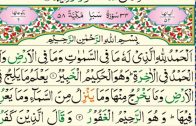 سورة سبا مكية
بسم الله الرحمن الرحيم
الحمد لله الذي له ما في السموت وما في الارض وله
الحمد في الاخرة وهو الحكيم الخبير يعلم ما يلج في
الارض وما يخرج منها وما ينزل من السماء وما يعرج
فيها وهو الرحيم الغفور وقال الذين كفروا